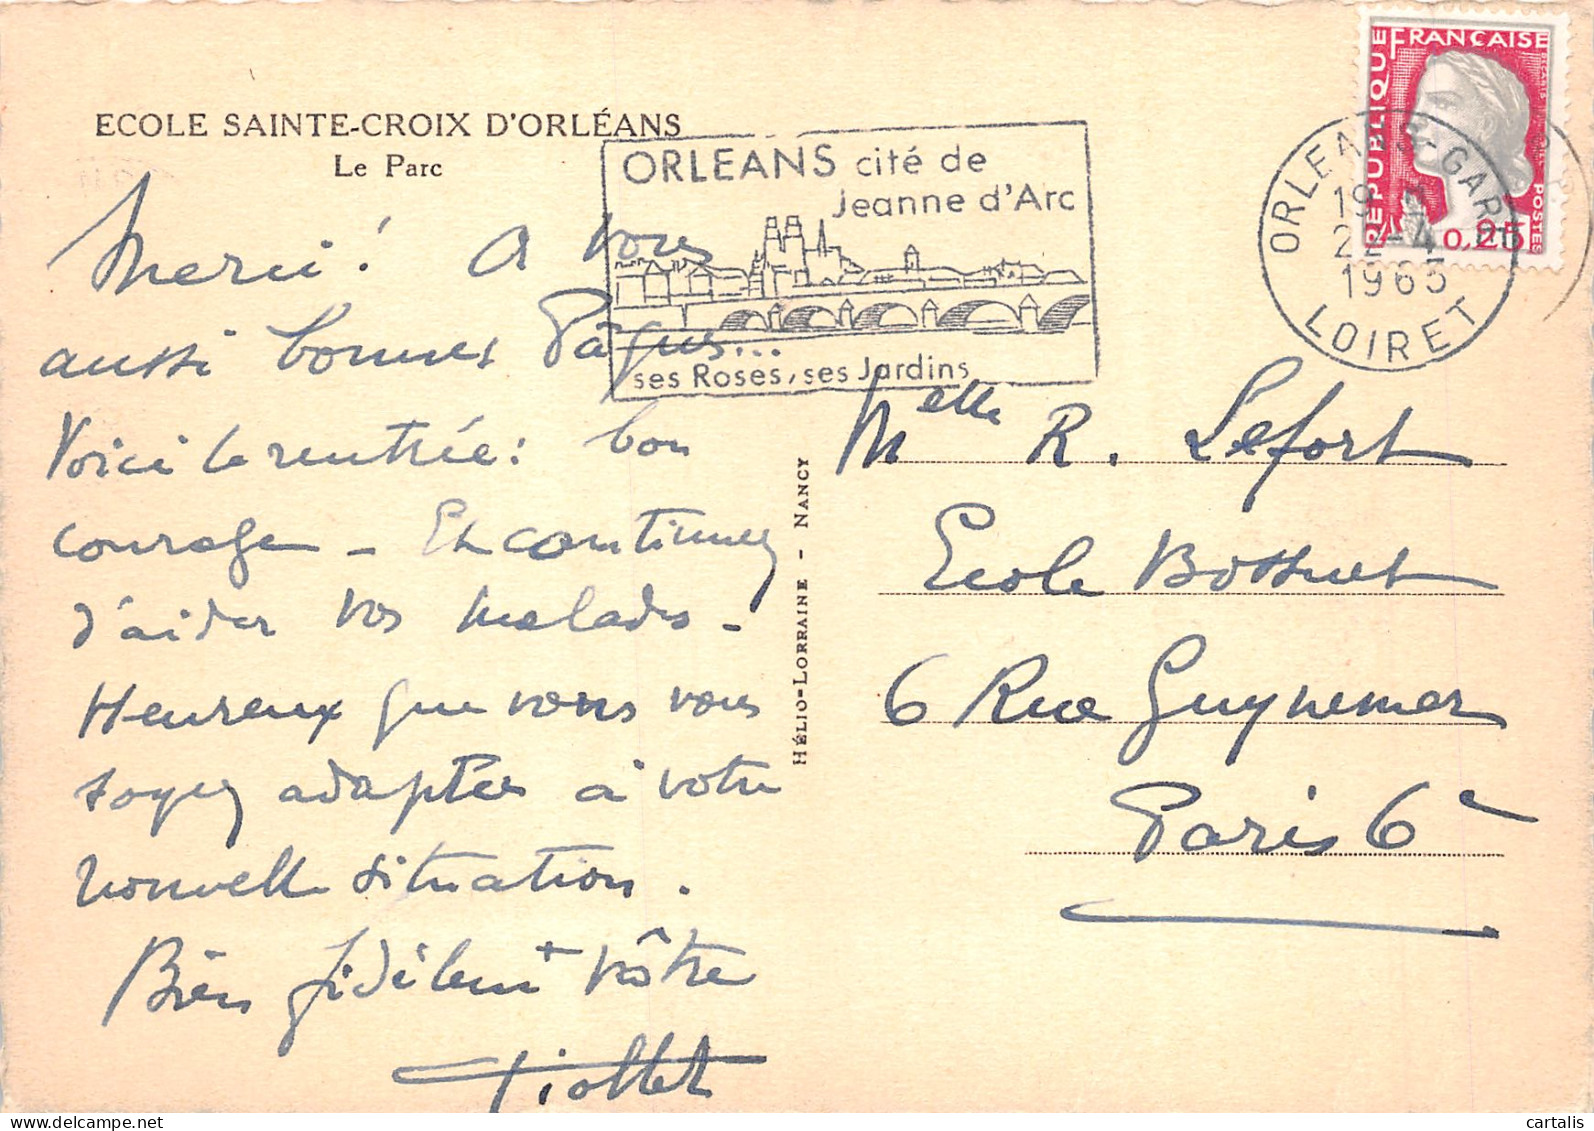 ECOLE SAINTE-CROIX D'ORLÉANS
Le Parc
Merci ! A vous
aussi bonnes Pâques...
Voici la rentrée : bon
courage - Et continuez
d'aider vos malades -
Heureux que vous vous
soyez adaptée à votre
nouvelle situation .
Bien fidèlemt vôtre
ORLEANS cité de
Jeanne d'Arc
ses Roses, ses Jardins
HÉLIO-LORRAINE - NANCY
RÉPUBLIQUE FRANÇAISE
POSTES
0,25
ORLEANS-GARE
1963
LOIRET
Melle R. Lefort
Ecole Bossuet
6 Rue Guynemer
Paris 6e
cartalis
www.delcampe.net